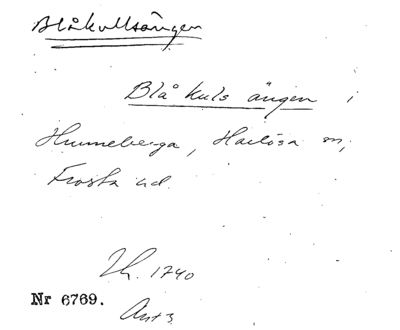 Blåkullsängen
Blå kuls ängen i
Hunneberga, Harlösa sn,
Frosta hd.
1740
Nr 6769.